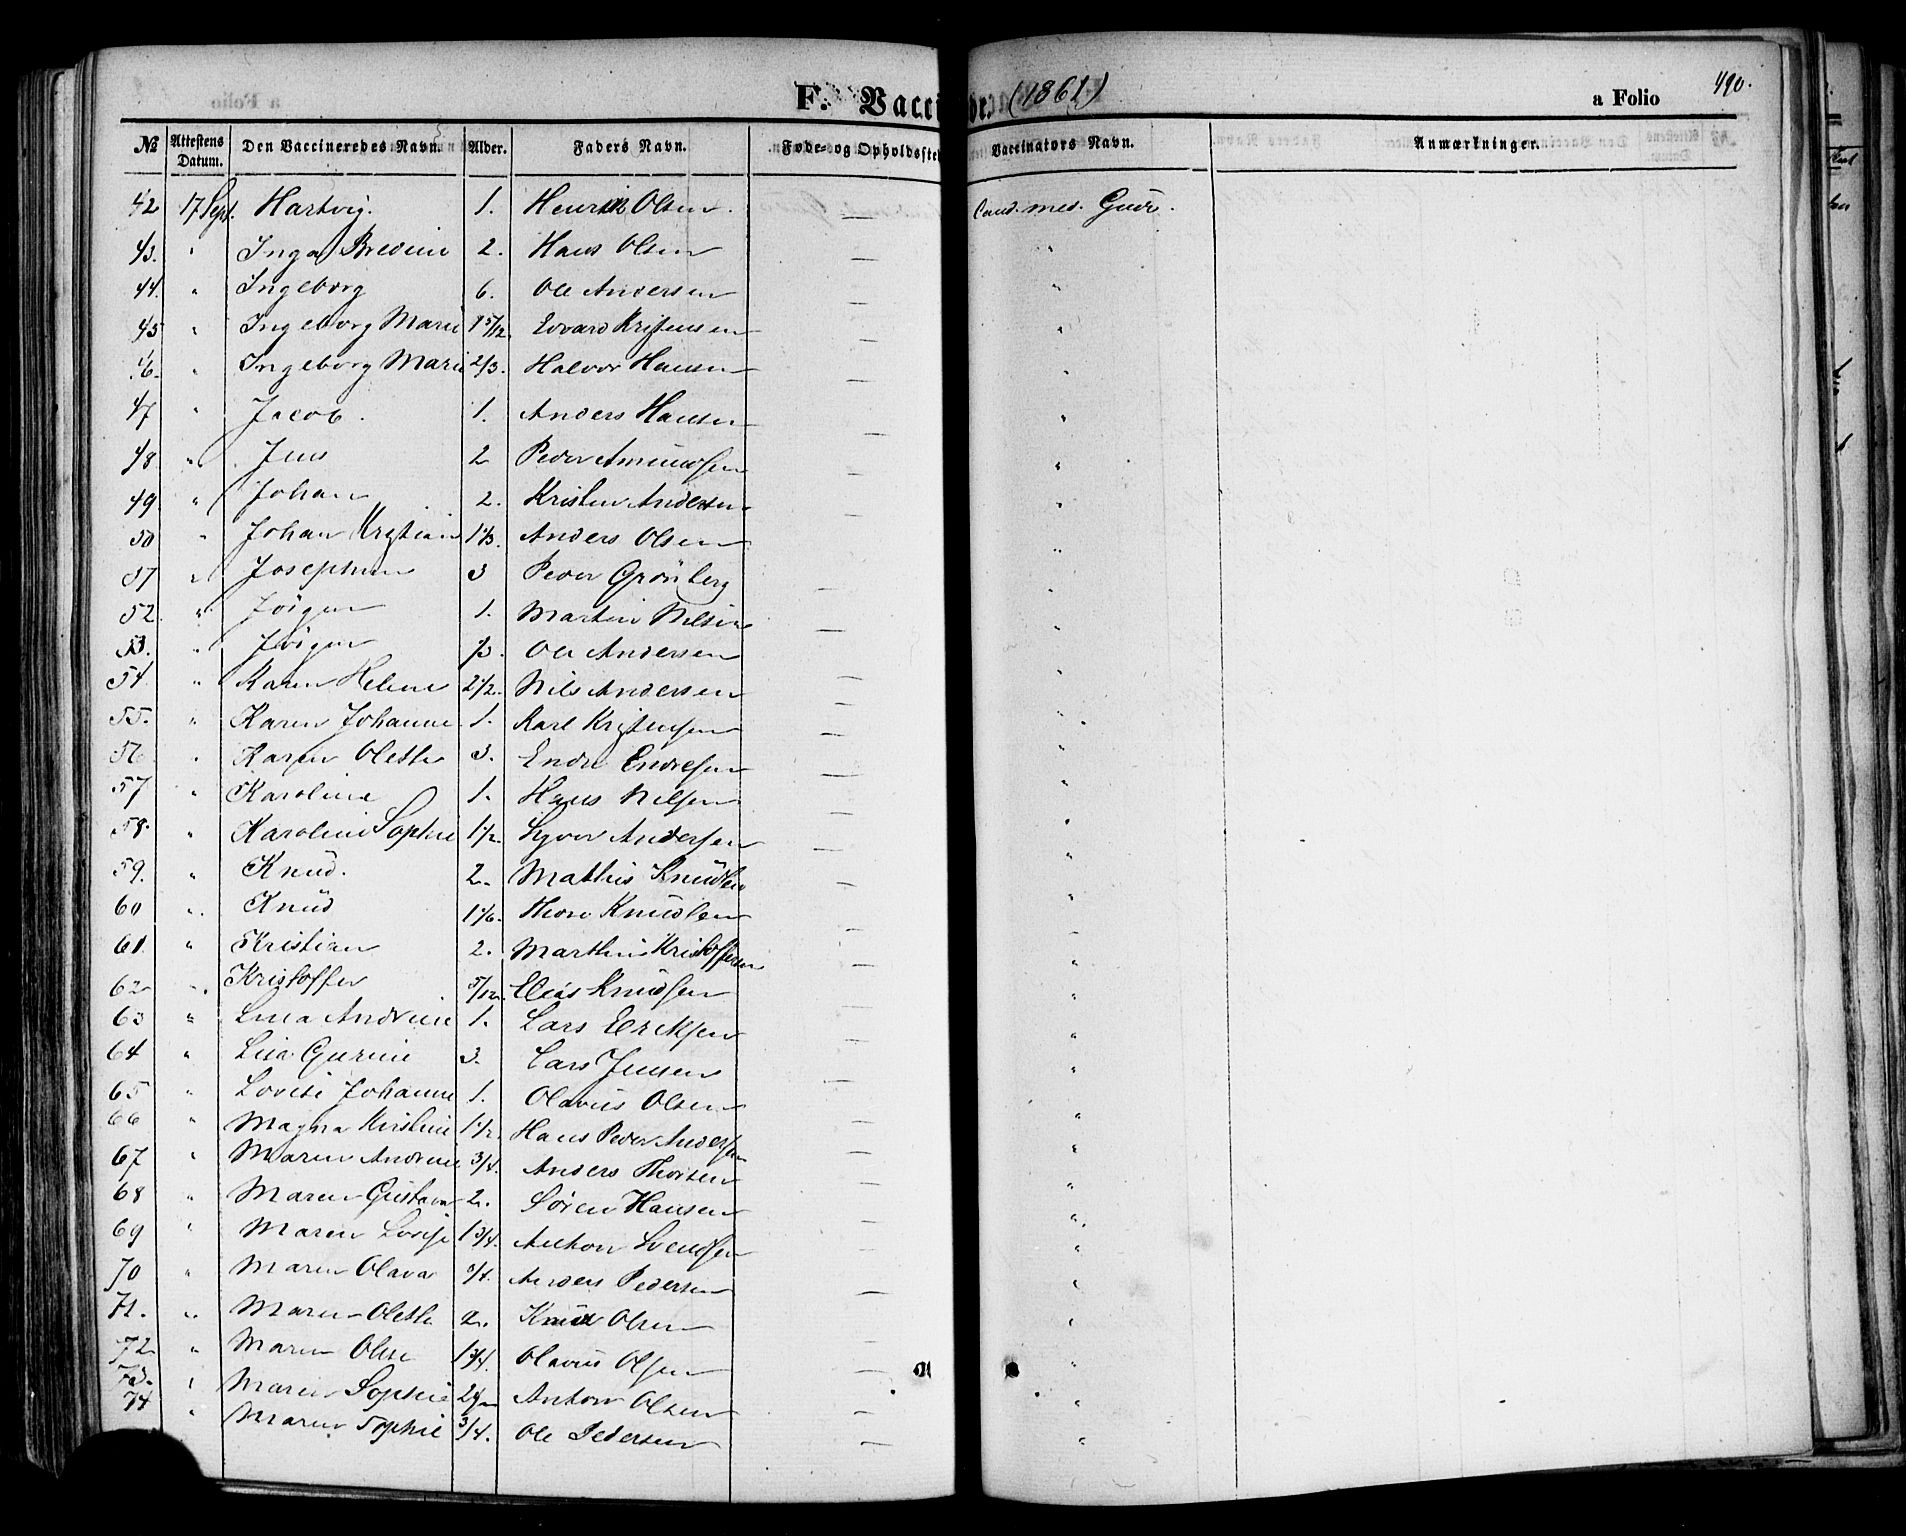 F. Vacci de. (1861) a Folio 490.
№ Attestens Datum. Den Vaccineredes Navn. Alder. Faders Navn. Føde- og Opholdsste Vaccinators Navn. Anmærkninger.
42 17 Sept. Hartvig. 1. Henrik Olsen. — Cand. med.
43. " Inga 2. Hans Olsen — "
44. " Ingeborg 6. Ole Andersen — "
45 " Ingeborg Marie 1 5/12. Edvard Kristensen — "
46. " Ingeborg Marie 2/3. Halvor Hansen — "
47 " Jacob. 1. Anders Hansen — "
48 " Jens 2 Peder Amundsen — "
49. " Johan 2. Kristen Andersen — "
50 " Johan Kristian 1 1/3. Anders Olsen — "
51 " Josephine 3 Peder Grönberg — "
52 " Jörgen 1. Martin Nilsen — "
53. " Jörgen 1/3. Ole Andersen — "
54 " Karen Helene 2 1/2. Nils Andersen — "
55. " Karen Johanne 1. Karl Kristensen — "
56 " Karen Olette 3. Endre Endresen — "
57 " Karoline 1. Hans Nilsen — "
58. " Karoline Sophie 1 1/2. Syver Andersen — "
59. " Knud. 2. Mathis Knudsen — "
60 " Knud 1 1/6. Thore Knudsen — "
61. " Kristian 2. Marthin Kristoffersen — "
62 " Kristoffer 5/12. Elias Knudsen — "
63 " Lina Andrine 1. Lars Eriksen — "
64 " Lina Gurine 3. Lars Jensen — "
65 " Lovise Johanne 1. Olavus Olsen — "
66 " Magna Kirstine 1 1/2. Hans Peder Andersen — "
67 " Maren Andrine 3/4. Anders Thorsen — "
68 " Maren Gustava 2. Sören Hansen — "
69 " Maren Lovise 1 3/4. Anthon Svendsen — "
70 " Maren Olava 3/4. Anders Pedersen — "
71. " Maren Olette 2. Knud Olsen — "
72 " Maren Olise 1 3/4. Olavus Olsen — "
73. " Maren Sophie Anton Olsen — "
74 " Maren Sophie 3/4. Ole Pedersen — "